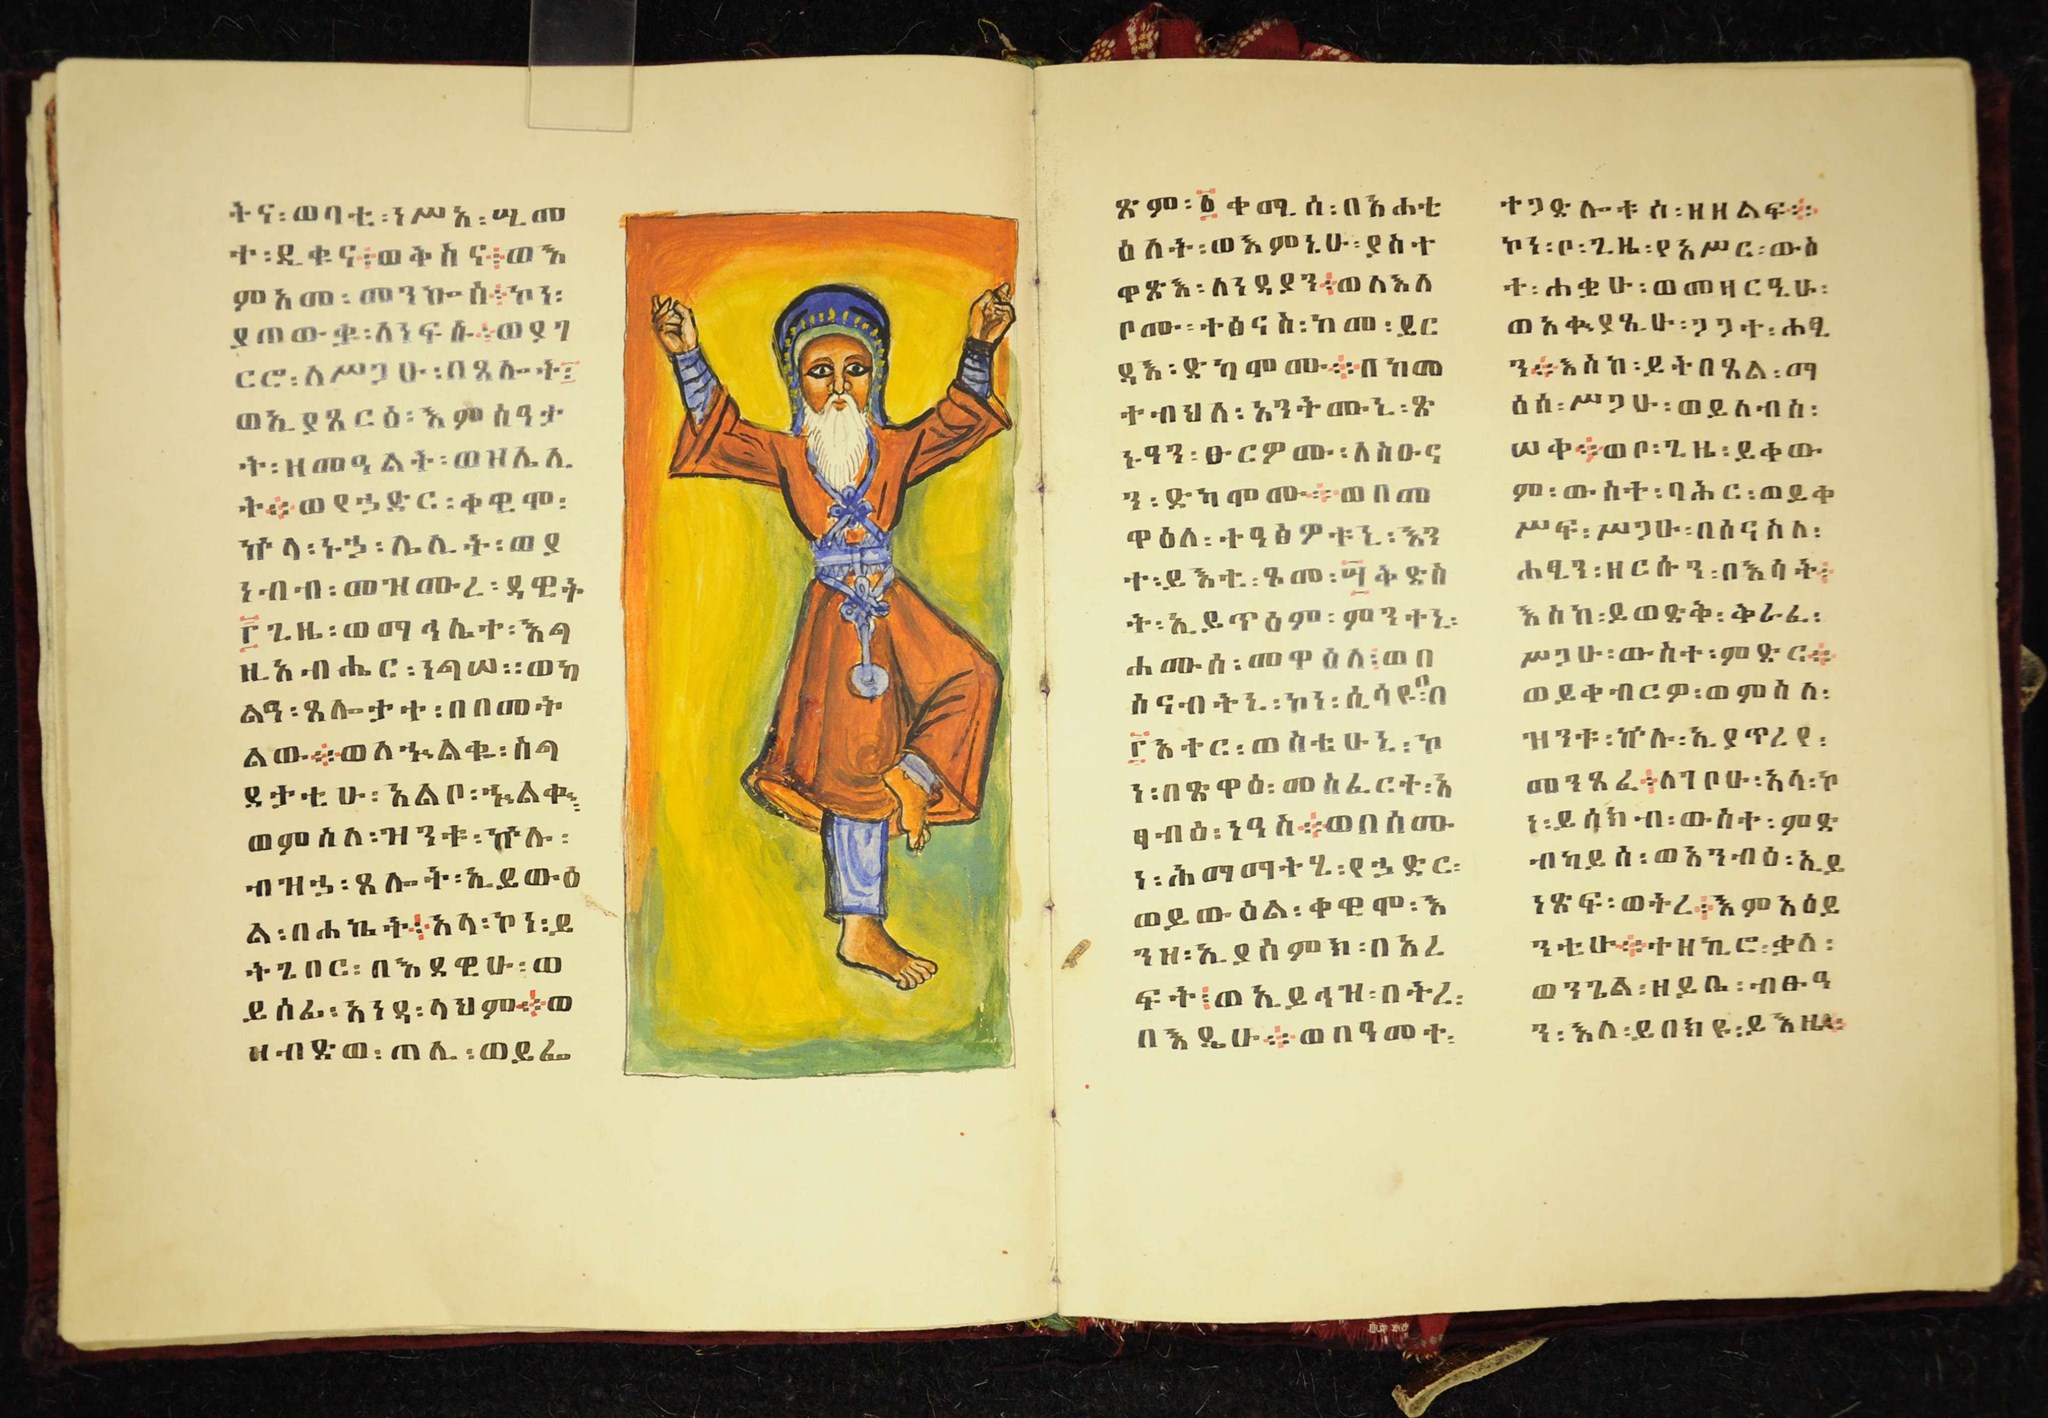 ትና፡ወባቲ፡ንሥአ፡ሢመ
ተ፡ዲቁና፨ወቅስና፨ወእ
ምአመ፡መንኵሰ፨ኮነ፡
ያጠውቋ፡ለነፍሱ፨ወያገ
ርሮ፡ለሥጋሁ፡በጸሎት፤
ወኢያጸርዕ፡እምሰዓታ
ት፡ዘመዓልት፡ወዘሌሊ
ት፨ወየኃድር፡ቀዊሞ፡
ኵላ፡ኑኃ፡ሌሊት፡ወያ
ነብብ፡መዝሙረ፡ዳዊት
፲ጊዜ፡ወማኅሌተ፡እግ
ዚአብሔር፡ነግሠ፡፡ወካ
ልዓ፡ጸሎታተ፡በበመት
ልው፨ወለኍልቁ፡ስግ
ደታቲሁ፡አልቦ፡ኍልቀ፡
ወምስለ፡ዝንቱ፡ኵሉ፡
ብዝኃ፡ጸሎት፡ኢይውዕ
ል፡በሐኬት፨አላ፡ኮነ፡ይ
ትጌበር፡በእደዊሁ፡ወ
ይሰፊ፡አንዳ፡ላህም፨ወ
ዘብድወ፡ጠሊ፡ወይፌ
ጽም፡፩ቀሚሰ፡በአሐቲ
ዕለት፡ወእምኔሁ፡ያስተ
ዋጽእ፡ለነዳያን፨ወለእለ
ቦሙ፡ተፅናስ፡ከመ፡ይር
ዳእ፡ድካሞሙ፨በከመ
ተብህለ፡አንትሙኒ፡ጽ
ኑዓን፡ፁርዎሙ፡ለስዑና
ን፡ድካሞሙ፨ወበመ
ዋዕለ፡ተዓፅዎቱኒ፡እን
ተ፡ይእቲ፡ጾመ፡፵ቅድስ
ት፡ኢይጥዕም፡ምንተኒ፡
ሐሙሰ፡መዋዕለ፤ወበ
ሰናብትኒ፡ኮነ፡ሲሳዩ፡በ
፲አተር፡ወስቴሁኒ፡ኮ
ነ፡በጽዋዕ፡መስፈርተ፡አ
ፃብዕ፡ነዓስ፨ወበሰሙ
ነ፡ሕማማትሂ፡የኃድር፡
ወይውዕል፡ቀዊሞ፡እ
ንዘ፡ኢያሰምክ፡በአረ
ፍት፤ወኢይኅዝ፡በትረ፡
በእዴሁ፨ወበዓመተ፡
ተጋድሎቱሰ፡ዘዘልፍ፨
ኮነ፡ቦ፡ጊዜ፡የአሥር፡ውስ
ተ፡ሐቋሁ፡ወመዛርዒሁ፡
ወአቍያጺሁ፡ጋጋተ፡ሐፂ
ን፨እስከ፡ይትበጸል፡ማ
ዕሰ፡ሥጋሁ፡ወይለብስ፡
ሠቀ፨ወቦ፡ጊዜ፡ይቀው
ም፡ውስተ፡ባሕር፡ወይቀ
ሥፍ፡ሥጋሁ፡በሰናስለ፡
ሐፂን፡ዘርሱን፡በእሳት፨
እስከ፡ይወድቅ፡ቅራፈ፡
ሥጋሁ፡ውስተ፡ምድር፨
ወይቀብርዎ፡ወምስለ፡
ዝንቱ፡ኵሉ፡ኢያጥረየ፡
መንጸፈ፨ለገቦሁ፡አላ፡ኮ
ነ፡ይሰክብ፡ውስተ፡ምድ
ብካይሰ፡ወአንብዕ፡ኢይ
ነጽፍ፡ወትረ፨እምአዕይ
ንቲሁ፨ተዘኪሮ፡ቃለ፡
ወንጌል፡ዘይቤ፡ብፁዓ
ን፡እለ፡ይበክዩ፡ይእዜ፨